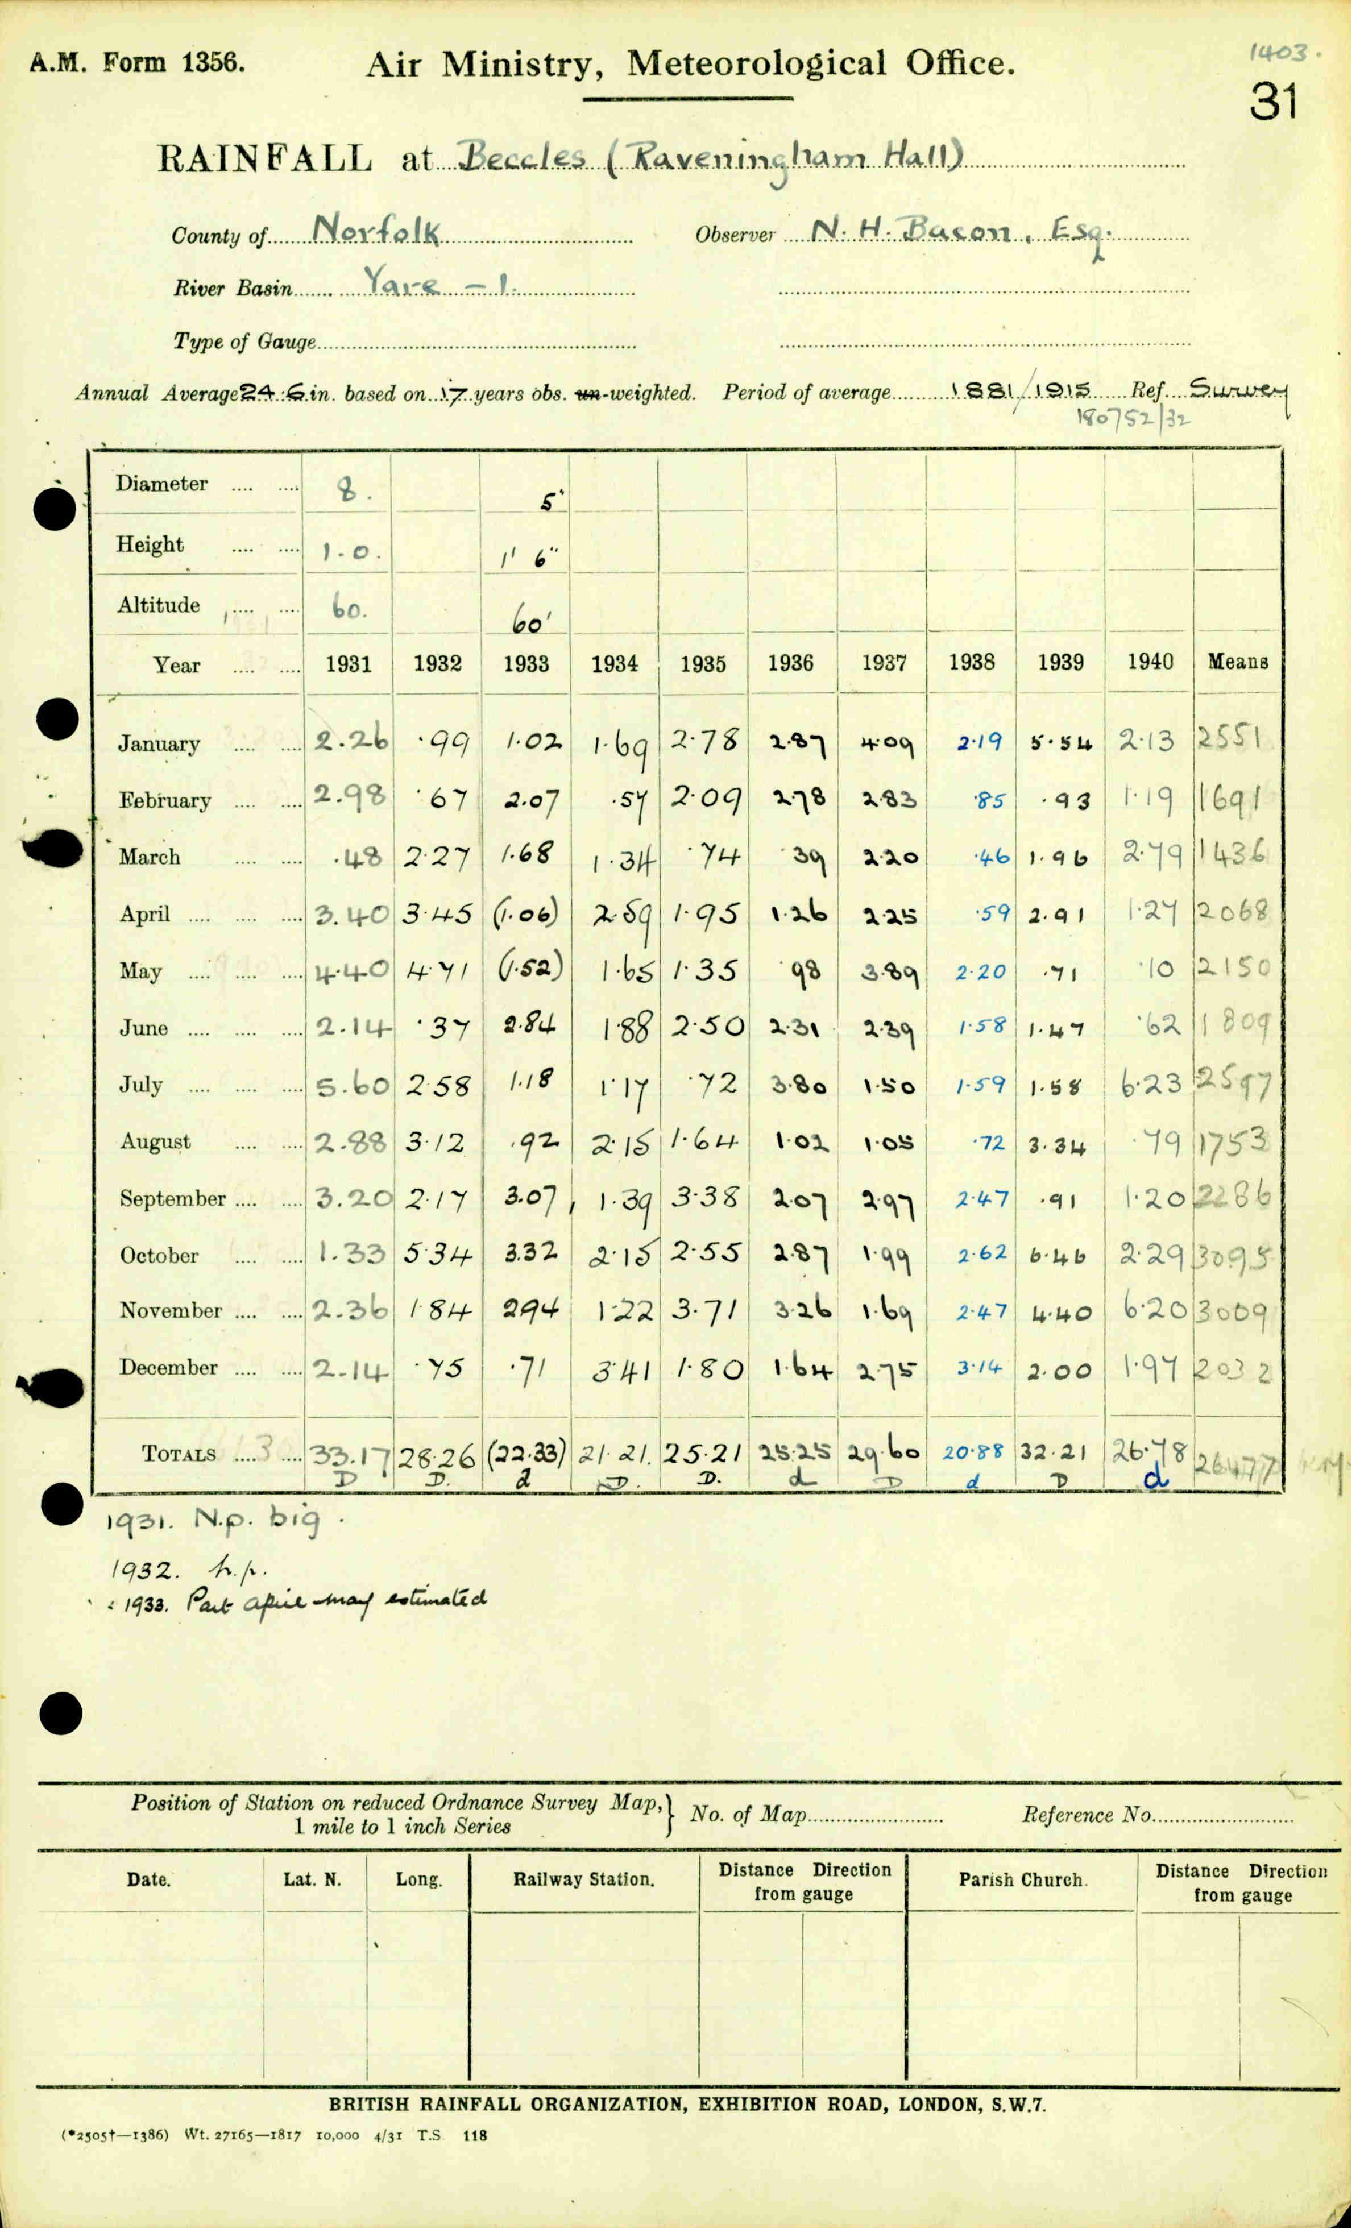 1403.
A.M. Form 1356. Air Ministry, Meteorological Office.
31
RAINFALL at Beccles (Raveningham Hall)
County of Norfolk Observer N. H. Bacon, Esq.
River Basin Yare - 1.
Type of Gauge
Annual Average 24.6 in. based on 17 years obs. un-weighted. Period of average 1881/1915 Ref. Survey
180752/32
Diameter 8. 5"
Height 1-0. 1' 6"
Altitude 60. 60'
Year 1931 1932 1933 1934 1935 1936 1937 1938 1939 1940 Means
January 2.26 .99 1.02 1.69 2.78 2.87 4.09 2.19 5.54 2.13 2551
February 2.98 .67 2.07 .57 2.09 2.78 2.83 .85 .93 1.19 1691
March .48 2.27 1.68 1.34 .74 .39 2.20 .46 1.96 2.79 1436
April 3.40 3.45 (1.06) 2.59 1.95 1.26 2.25 .59 2.91 1.27 2068
May 4.40 4.71 (1.52) 1.65 1.35 .98 3.89 2.20 .71 .10 2150
June 2.14 .37 2.84 1.88 2.50 2.31 2.39 1.58 1.47 .62 1809
July 5.60 2.58 1.18 1.17 .72 3.80 1.50 1.59 1.58 6.23 2597
August 2.88 3.12 .92 2.15 1.64 1.02 1.05 .72 3.34 .79 1753
September 3.20 2.17 3.07 1.39 3.38 2.07 2.97 2.47 .91 1.20 2286
October 1.33 5.34 3.32 2.15 2.55 2.87 1.99 2.62 6.46 2.29 3095
November 2.36 1.84 2.94 1.22 3.71 3.26 1.69 2.47 4.40 6.20 3009
December 2.14 .75 .71 3.41 1.80 1.64 2.75 3.14 2.00 1.97 2032
TOTALS 33.17 28.26 (22.33) 21.21. 25.21 25.25 29.60 20.88 32.21 26.78 26477
D D. d D. D. d D d D d
1931. N.p. big.
1932. h.p.
1933. Part April - May estimated
Position of Station on reduced Ordnance Survey Map, } No. of Map Reference No.
1 mile to 1 inch Series
Date. Lat. N. Long. Railway Station. Distance Direction Parish Church. Distance Direction
from gauge from gauge
BRITISH RAINFALL ORGANIZATION, EXHIBITION ROAD, LONDON, S.W.7.
(*2505†—1386) Wt. 27165—1817 10,000 4/31 T.S. 118